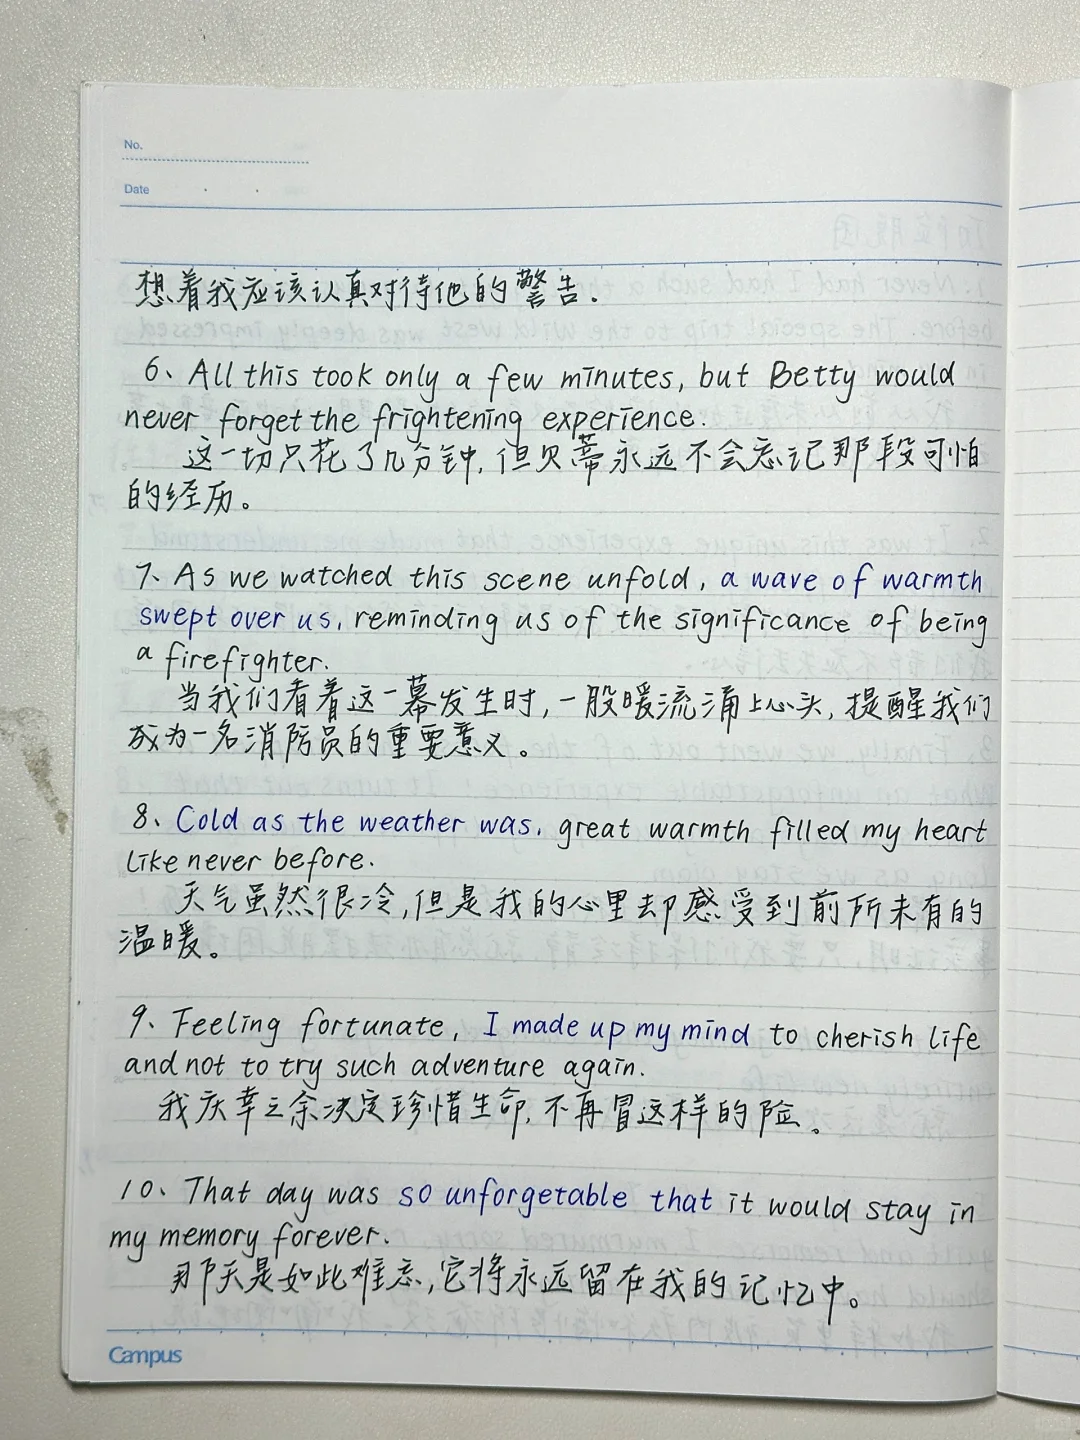 No.
Date
想着我应该认真对待他的警告.
6、All this took only a few minutes, but Betty would
never forget the frightening experience.
这一切只花了几分钟,但贝蒂永远不会忘记那段可怕
的经历。
7、As we watched this scene unfold, a wave of warmth
swept over us, reminding us of the significance of being
a firefighter.
当我们看着这一幕发生时,一股暖流涌上心头,提醒我们
成为一名消防员的重要意义。
8、Cold as the weather was, great warmth filled my heart
like never before.
天气虽然很冷,但是我的心里却感受到前所未有的
温暖。
9、Feeling fortunate, I made up my mind to cherish life
and not to try such adventure again.
我庆幸之余决定珍惜生命,不再冒这样的险。
10、That day was so unforgetable that it would stay in
my memory forever.
那天是如此难忘,它将永远留在我的记忆中。
Campus